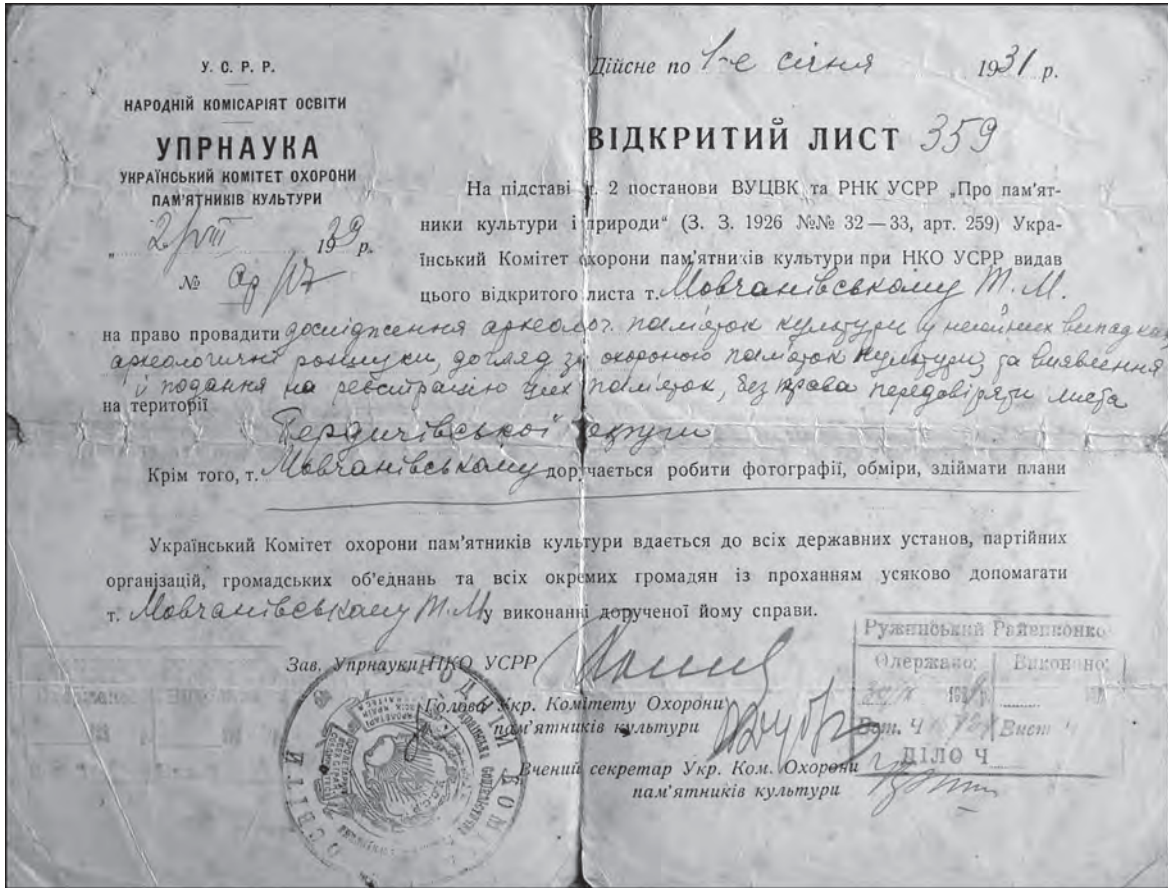 У. С. Р. Р.
НАРОДНІЙ КОМІСАРІЯТ ОСВІТИ
УПРНАУКА
УКРАЇНСЬКИЙ КОМІТЕТ ОХОРОНИ
ПАМ'ЯТНИКІВ КУЛЬТУРИ
„ 2/VIII 1929 р.
№ ар/17
Дійсне по 1-е січня 1931 р.
ВІДКРИТИЙ ЛИСТ 359
На підставі 2 постанови ВУЦВК та РНК УСРР „Про пам'ят-
ники культури і природи“ (З. З. 1926 №№ 32 — 33, арт. 259) Укра-
їнський Комітет охорони пам'ятників культури при НКО УСРР видав
цього відкритого листа т. Мовчанівському Т. М.
на право провадити дослідження археолог. пам'яток культури у негайних випадках,
археологичні розшуки, догляд за охороною пам'яток культури, та виявлення
й подання на реєстрацію цих пам'яток, без права передовіряти листа
на території
Бердичівської округи
Крім того, т. Мовчанівському доручається робити фотографії, обміри, здіймати плани
Український Комітет охорони пам'ятників культури вдається до всіх державних установ, партійних
організацій, громадських об'єднань та всіх окремих громадян із проханням усяково допомагати
т. Мовчанівському Т. М. у виконанні дорученої йому справи.
Зав. Упрнауки НКО УСРР
Голова Укр. Комітету Охорони
пам'ятників культури
Вчений секретар Укр. Ком. Охорони
пам'ятників культури
Ружинський Райвиконко
Одержано: Виконано:
ДІЛО Ч